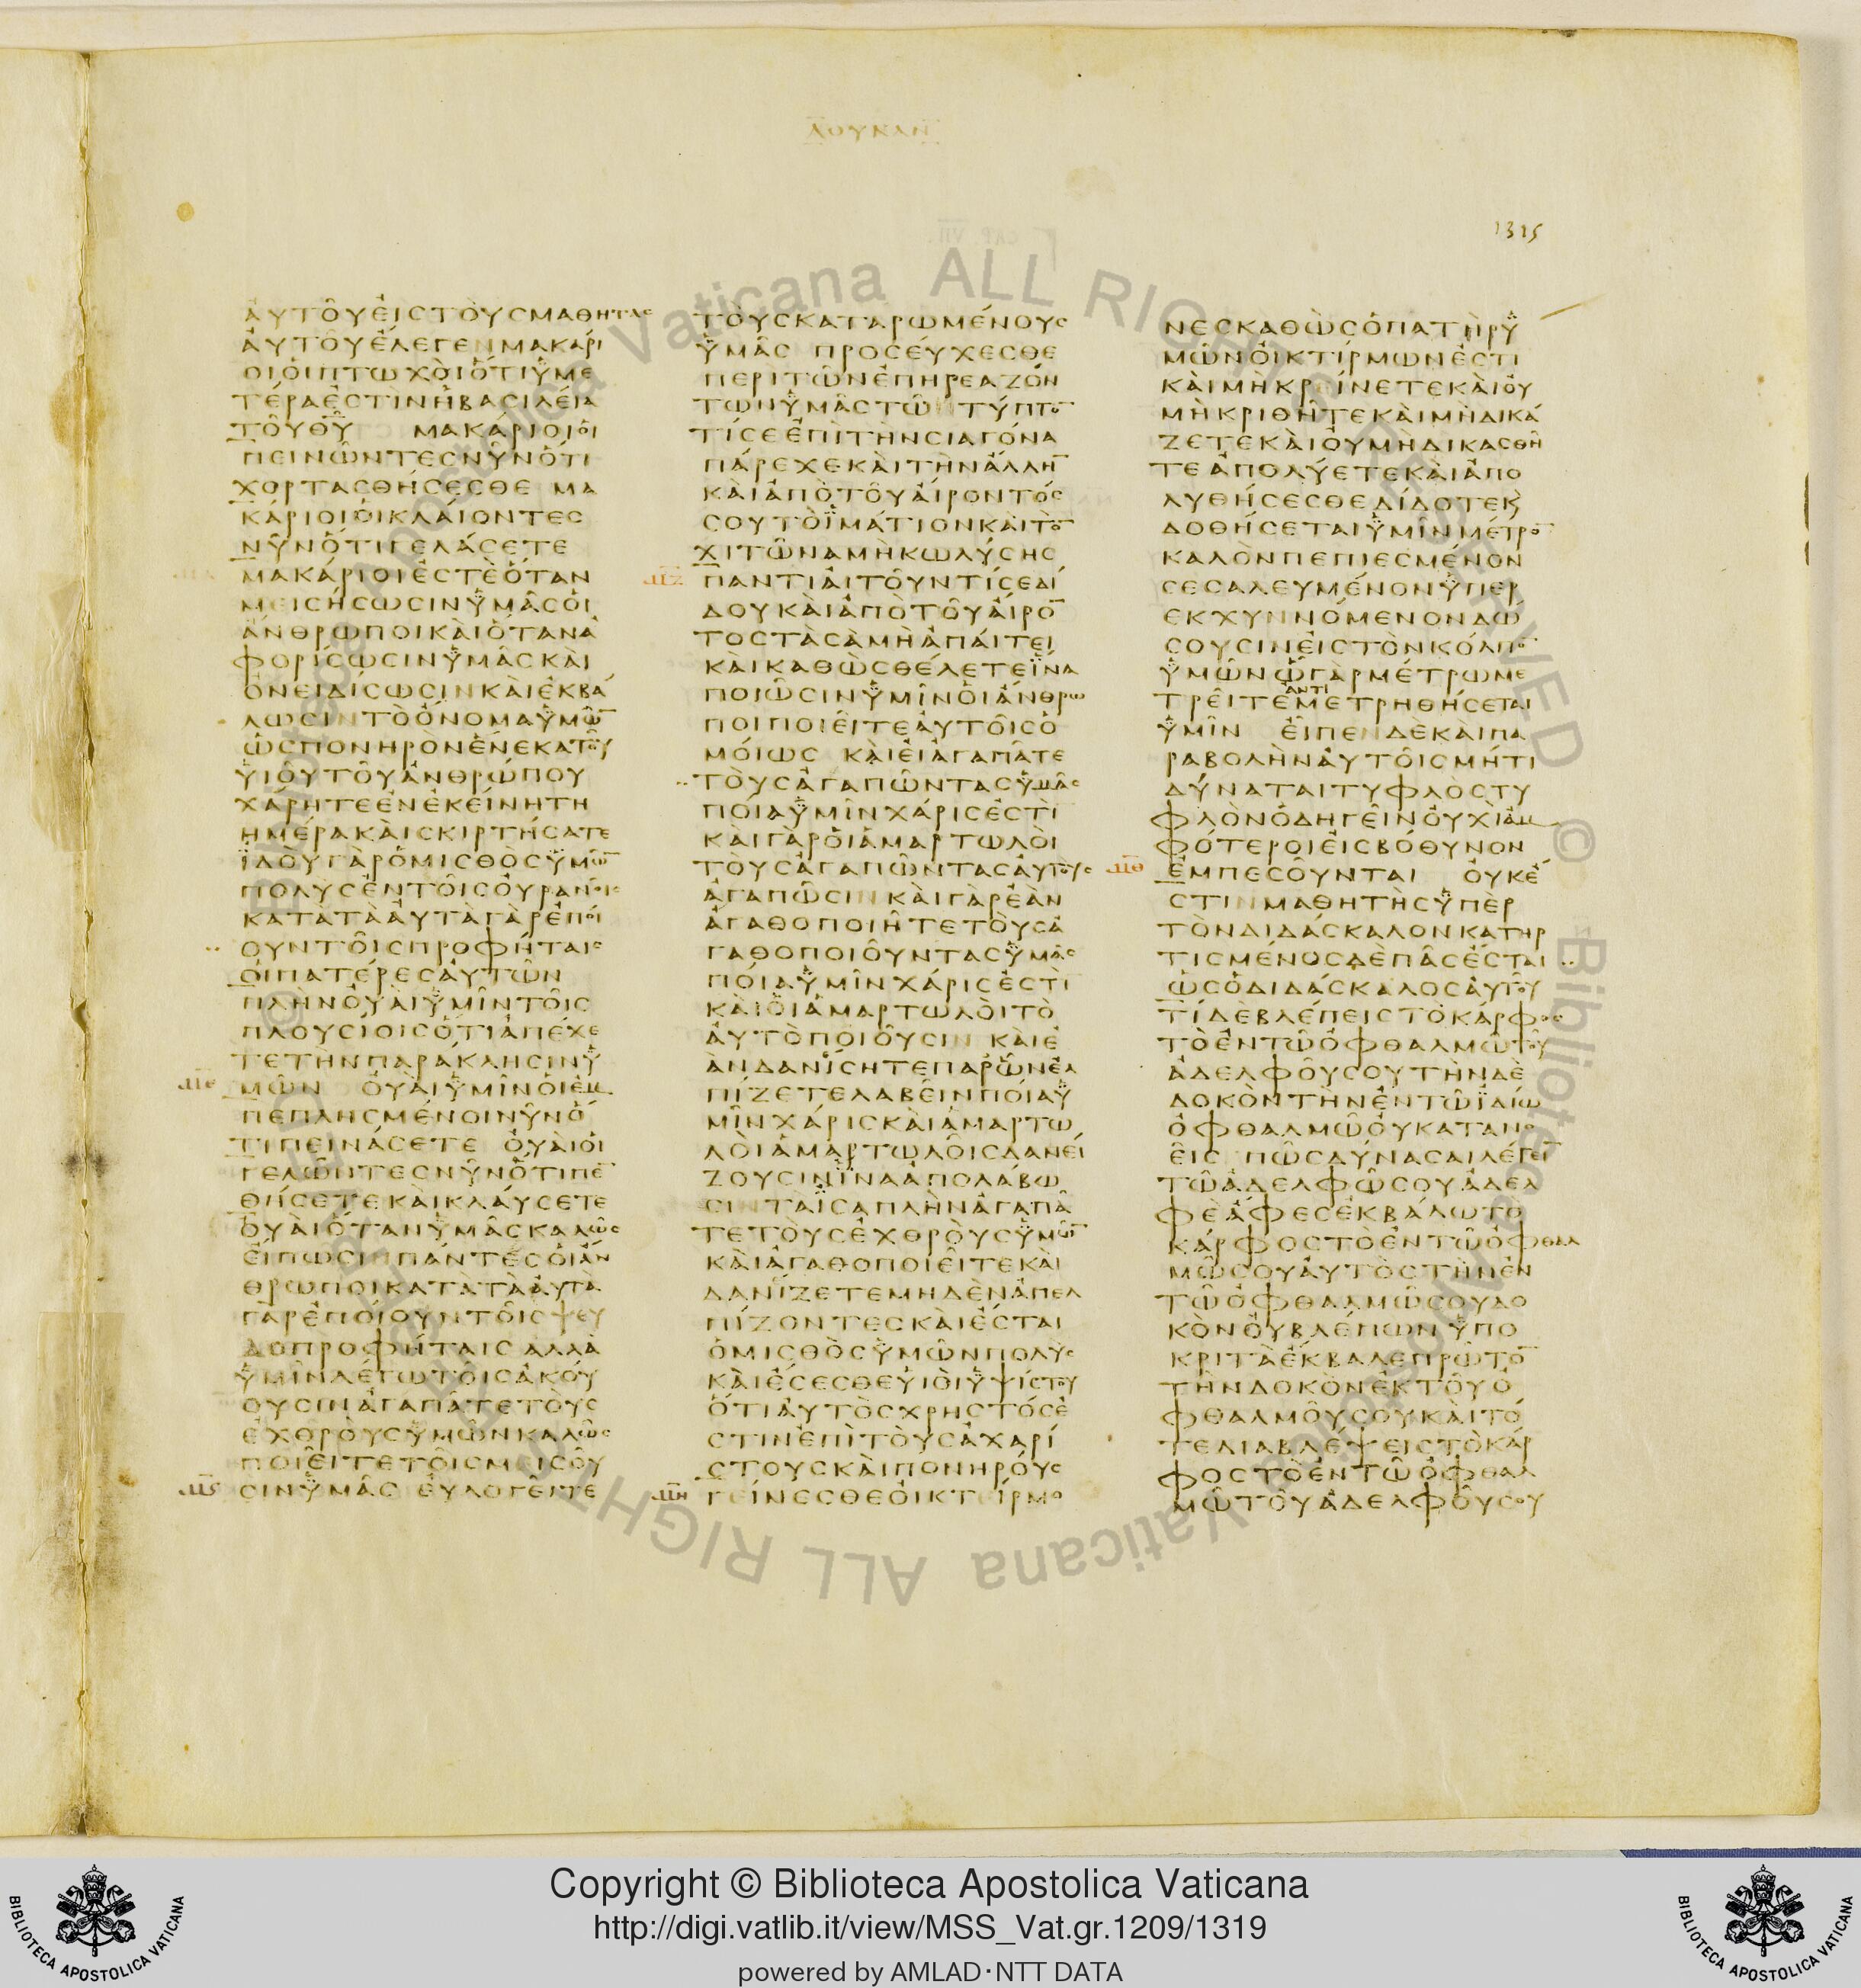 ΛΟΥΚΑΝ
1315
ἀυτοῦἐιςτοὺςμαθητὰς
ἀυτοῦἔλεγενμακάρι
οιὁιπτωχοὶὅτιὑμε
τέραἐςτὶνἡβαςιλεία
τοῦθῦ μακάριοιὁι
πεινῶντεςνῦνὅτι
χορταςθήςεςθε μα
κάριοιὁικλάιοντες
νῦνὅτιγελάςετε
μακάριοιἐςτὲὅταν
μειςήςωςινὑμᾶςὁι
ἄνθρωποικαὶὅτανἀ
φορίςωςινὑμᾶςκαὶ
ὀνειδίςωςινκαὶἐκβά
λωςιντὸὄνομαὑμῶ̅
ὡςπονηρὸνἕνεκατοῦ
ὑιοῦτοῦἀνθρώπου
χάρητεἐνἐκείνητῆ
ἡμέρακαὶςκιρτήςατε
ἰδοὺγὰρὁμιςθὸςὑμῶ̅
πολὺςἐντοῖςὀυρανοῖς
κατατὰἀυτὰγὰρἐποί
ουντοῖςπροφήταις
ὁιπατέρεςἀυτῶν
πλὴνὀυὰιὑμῖντοῖς
πλουςίοιςὅτιἀπέχε
τετὴνπαράκληςινὑ
μῶν ὀυὰιὑμῖνὁιἐμ
πεπληςμένοινῦνὅ
τιπεινάςετε ὀυὰιὁι
γελῶντεςνῦνὅτιπε̅
θήςετεκαὶκλάυςετε
ὀυὰιὅτανὑμᾶςκαλῶς
ἔιπωςινπάντεςὁιἄν
θρωποικατὰτὰἀυτὰ
γὰρἐποίουντοῖςψευ
δοπροφήταιςαλλὰ
ὑμῖνλέγωτοῖςἀκόυ
ουςινἀγαπᾶτετοὺς
ἐχθροὺςὑμῶνκαλῶς
ποιεῖτετοῖςμειςοῦ
ςινὑμᾶς ἐυλογεῖτε
τοὺςκαταρωμένους
ὑμᾶς προςέυχεςθε
περιτῶνἐπηρεαζόν
τωνὑμᾶςτῶντύπτο̅
τίςεἐπὶτὴνςιαγόνα
πάρεχεκαὶτὴνἄλλη̅
καὶἀπὸτοῦἄιροντός
ςουτὸἱμάτιονκαὶτὸ̅
χιτῶναμὴκωλύςης
παντιἀιτοῦντίςεδί
δουκαὶἀπὸτοῦἄιρο̅
τοςτὰςὰμὴἀπάιτει
καὶκαθὼςθέλετεἵνα
ποιῶςινὑμῖνὁιἄνθρω
ποιποιεῖτεἀυτοῖςὁ
μόιως καὶἐιἀγαπᾶτε
τοὺςἀγαπῶνταςὑμᾶς
ποίαὑμῖνχάριςἐςτὶ
καὶγὰρὁιἁμαρτωλοὶ
τοὺςἀγαπῶνταςἀυτοὺς
ἀγαπῶςιν καὶγὰρἐὰν
ἀγαθοποιῆτετοὺςἀ
γαθοποιοῦνταςὑμᾶς
πόιαὑμῖνχάριςἐςτὶ
καὶὁιἁμαρτωλὸιτὸ
ἀυτὸποιοῦςιν καὶἐ
ὰνδανίςητεπαρὧνἐλ
πίζετελαβεῖνποίαὑ
μῖνχάριςκαὶἁμαρτω
λὸιἁμαρτωλοῖςδανεί
ζουςινἵναἀπολάβω
ςινταἴςαπλὴνἀγαπᾶ
τετοὺςἐχθροὺςὑμῶ̅
καὶἀγαθοποιεῖτεκαὶ
δανίζετεμηδὲνἀπελ
πίζοντεςκαὶἔςται
ὁμιςθὸςὑμῶνπολὺς
καὶἔςεςθευἱοὶὑψίςτου
ὅτιἀυτὸςχρηςτόςἐ
ςτινἐπὶτοὺςἀχαρί
ςτουςκαὶπονηρόυς
γείνεςθεὀικτείρμο
νεςκαθὼςὁπατὴρὑ
μῶνὀικτίρμωνἐςτι
καὶμὴκρείνετεκαὶὀυ
μὴκριθῆτεκαὶμὴδικά
ζετεκαὶὀυμὴδικαςθῆ
τεἀπολύετεκαὶἀπο
λυθήςεςθεδίδοτεκ̀
δοθήςεταιὑμῖνμέτρο̅
καλὸνπεπιεςμένον
ςεςαλευμένονὑπερ
εκχυννόμενονδώ
ςουςινἐιςτὸνκόλπο̅
ὑμῶνὧγὰρμέτρωμε
αντι
τρεῖτεμετρηθήςεται
ὑμῖν ἐῖπενδὲκαὶπα
ραβολὴνἀυτοῖςμήτι
δύναταιτυφλὸςτυ
φλὸνὁδηγεῖνὀυχὶἀμ
φότεροιἐιςβόθυνον
ἐμπεςοῦνται ὀυκἔ
ςτινμαθητὴςὑπὲρ
τὸνδιδάςκαλονκατηρ
τιςμένοςδὲπᾶςἔςται
ὡςὁδιδάςκαλοςἀυτοῦ
τίδὲβλέπειςτὸκάρφος
τὸἐντῶὀφθαλμῶτοῦ
ἀδελφοῦςουτὴνδὲ
δοκὸντηνἐντῶἰδίω
ὀφθαλμῶὀυκατανο
εῖς πῶςδύναςαιλέγει̅
τῶἀδελφῶςουἀδελ
φὲἄφεςἐκβάλωτὸ
κάρφοςτὸἐντῶὀφθαλ
μῶςουἀυτὸςτὴνἐν
τῶὀφθαλμῶςουδο
κὸνὀυβλέπωνὑπο
κριτὰἔκβαλεπρῶτο̅
τὴνδοκὸνἐκτοῦὀ
φθαλμοῦςουκαὶτό
τεδιαβλέψειςτὸκάρ
φοςτὸἐντῶὀφθαλ
μῶτοῦἀδελφοῦςου
Copyright © Biblioteca Apostolica Vaticana
http://digi.vatlib.it/view/MSS_Vat.gr.1209/1319
powered by AMLAD·NTT DATA
BIBLIOTECA APOSTOLICA VATICANA
BIBLIOTECA APOSTOLICA VATICANA